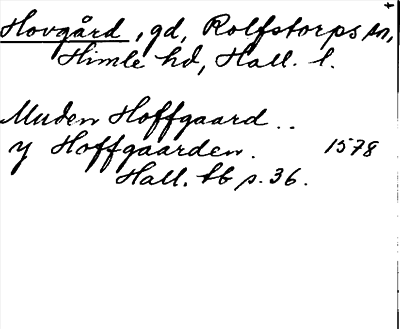 Hovgård, gd, Rolfstorps sn,
Himle hd, Hall. l.
Muden Hoffgaard..
y Hoffgaarden. 1578
Hall. tb p. 36.